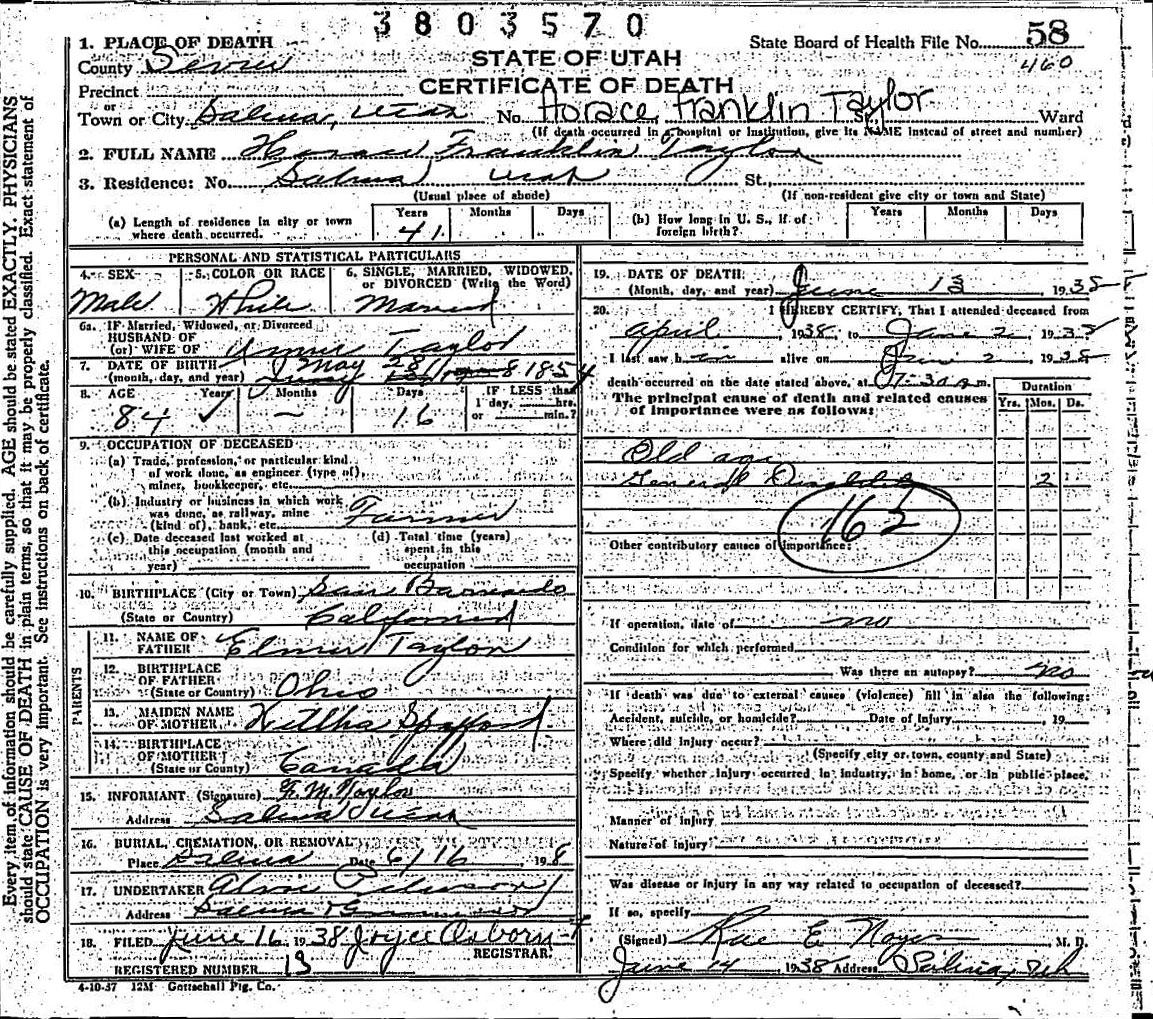 3803570
1. PLACE OF DEATH
County Sevier
STATE OF UTAH
CERTIFICATE OF DEATH
State Board of Health File No. 58
460
Precinct
or
Town or City Salina, Utah No. Horace Franklin Taylor Ward
(If death occurred in a hospital or institution, give its NAME instead of street and number)
2. FULL NAME Horace Franklin Taylor
3. Residence: No. Salina Utah St.
(Usual place of abode) (If non-resident give city or town and State)
(a) Length of residence in city or town where death occurred. Years 41 Months Days
(b) How long in U. S., if of foreign birth? Years Months Days
PERSONAL AND STATISTICAL PARTICULARS
4. SEX 5. COLOR OR RACE 6. SINGLE, MARRIED, WIDOWED, or DIVORCED (Write the Word)
Male White Married
6a. IF Married, Widowed, or Divorced
HUSBAND OF
(or) WIFE OF Taylor
7. DATE OF BIRTH May 28
(month, day, and year) 1854
8. AGE Years Months Days IF LESS than
1 day, hrs.
or min.?
84 ✓ – 16
9. OCCUPATION OF DECEASED
(a) Trade, profession, or particular kind
of work done, as engineer (type of),
miner, bookkeeper, etc.
(b) Industry or business in which work
was done, as railway, mine
(kind of), bank, etc. Farmer
(c) Date deceased last worked at
this occupation (month and
year)
(d) Total time (years)
spent in this
occupation
10. BIRTHPLACE (City or Town) San
(State or Country) California
PARENTS
11. NAME OF
FATHER Elmer Taylor
12. BIRTHPLACE
OF FATHER
(State or Country) Ohio
13. MAIDEN NAME
OF MOTHER
14. BIRTHPLACE
OF MOTHER
(State or Country) Canada
15. INFORMANT (Signature)
Address Salina Utah
16. BURIAL, CREMATION, OR REMOVAL
Place Salina Date 6/16, 1938
17. UNDERTAKER
Address Salina
18. FILED June 16 1938 Joyce Osborn
REGISTRAR.
REGISTERED NUMBER 13
4-10-37 12M Gottschall Ptg. Co.
19. DATE OF DEATH
(Month, day, and year) June 13, 1938
20. I HEREBY CERTIFY, That I attended deceased from
April, 1938, to June 2, 1938
I last saw h im alive on June 2, 1938
death occurred on the date stated above, at 7:30 a m.
The principal cause of death and related causes
of importance were as follows:
Duration
Yrs. Mos. Ds.
Old age
General 2
162
Other contributory causes of importance:
If operation, date of no
Condition for which performed
Was there an autopsy? no
If death was due to external causes (violence) fill in also the following:
Accident, suicide, or homicide? Date of injury , 19
Where did injury occur?
(Specify city or town, county and State)
Specify whether injury occurred in industry, in home, or in public place.
Manner of injury
Nature of injury
Was disease or injury in any way related to occupation of deceased?
If so, specify
(Signed) Rae E Noyes M. D.
June 14 1938 Address Salina, Utah
Every item of information should be carefully supplied. AGE should be stated EXACTLY. PHYSICIANS
should state CAUSE OF DEATH in plain terms, so that it may be properly classified. Exact statement of
OCCUPATION is very important. See instructions on back of certificate.